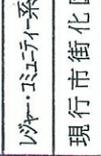 レジャー・コミュニティー系
現行市街化